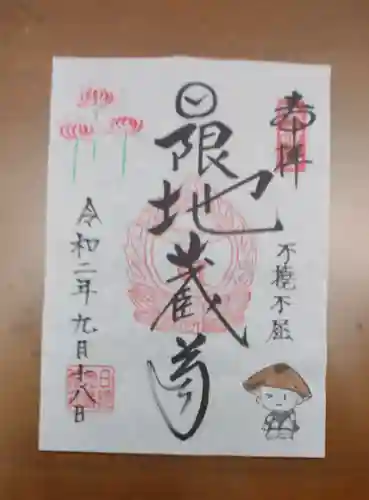 奉拝
不撓不屈
日限地蔵尊
令和二年九月十八日